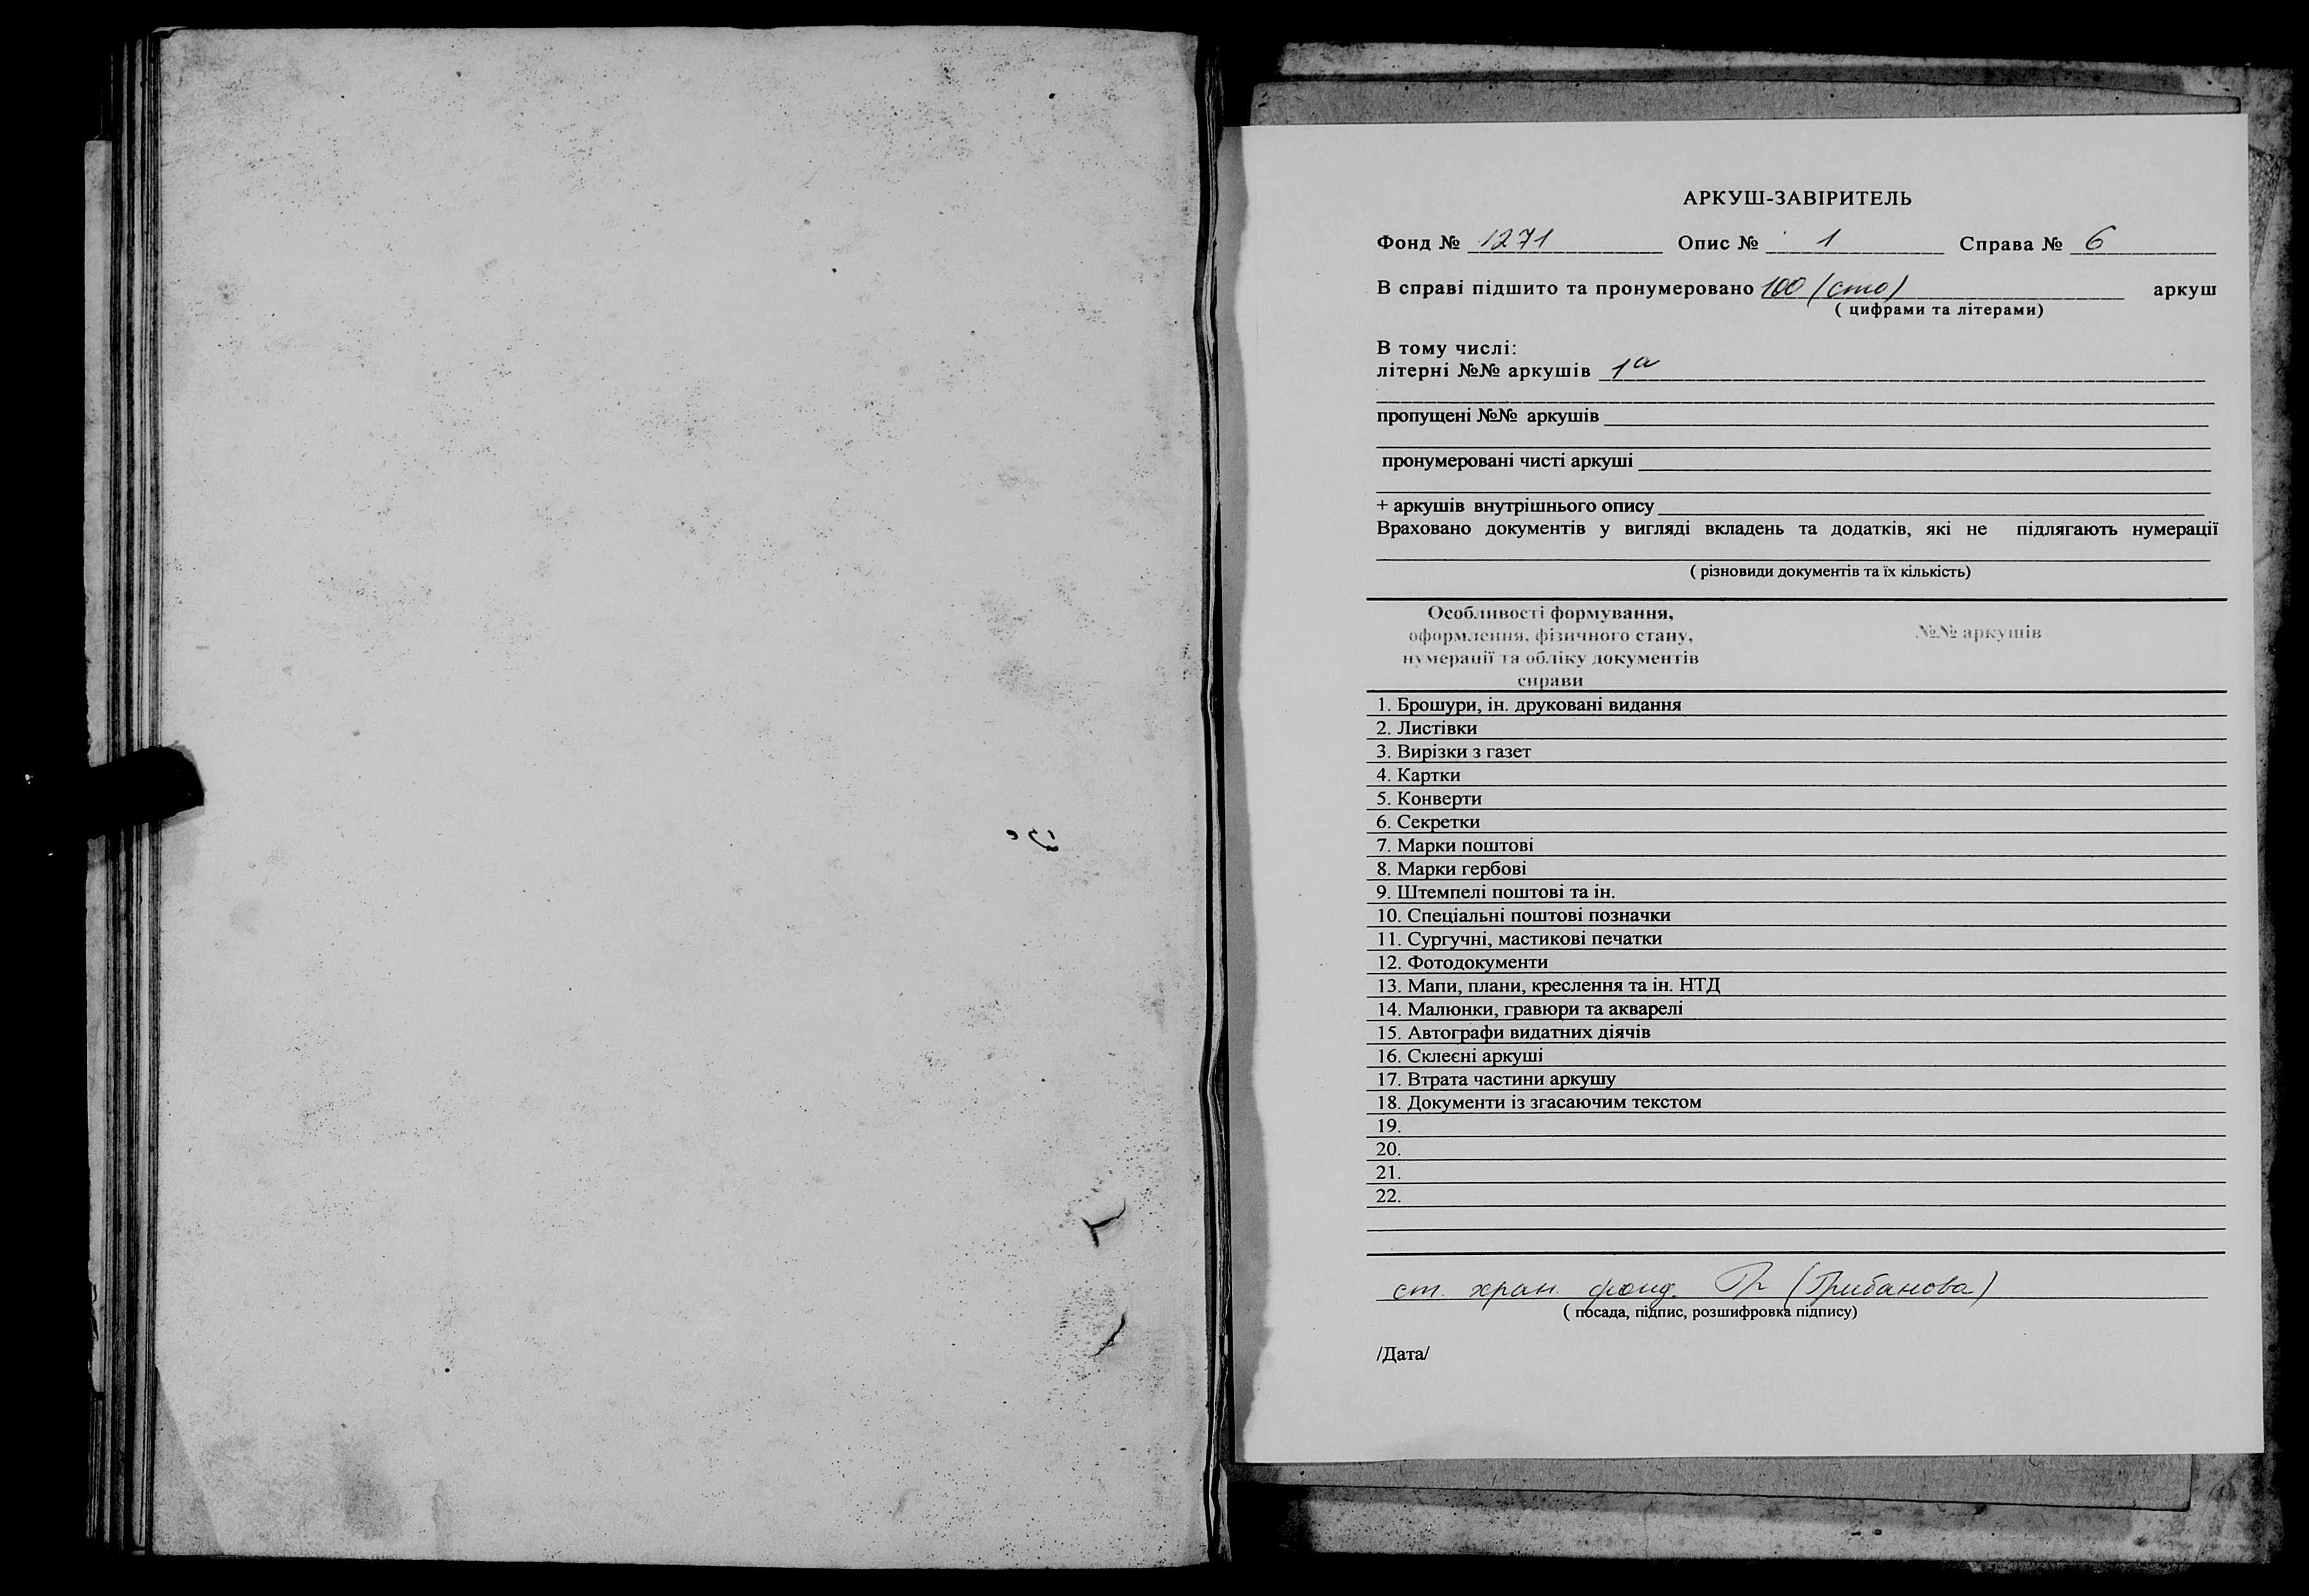 АРКУШ-ЗАВІРИТЕЛЬ
Фонд № 1271 Опис № 1 Справа № 6
В справі підшито та пронумеровано 100 (сто) аркуш
( цифрами та літерами)
В тому числі:
літерні №№ аркушів 1а
пропущені №№ аркушів
пронумеровані чисті аркуші
+ аркушів внутрішнього опису
Враховано документів у вигляді вкладень та додатків, які не підлягають нумерації
( різновиди документів та їх кількість)
Особливості формування,
оформлення, фізичного стану,
нумерації та обліку документів
справи
№№ аркушів
1. Брошури, ін. друковані видання
2. Листівки
3. Вирізки з газет
4. Картки
5. Конверти
6. Секретки
7. Марки поштові
8. Марки гербові
9. Штемпелі поштові та ін.
10. Спеціальні поштові позначки
11. Сургучні, мастикові печатки
12. Фотодокументи
13. Мапи, плани, креслення та ін. НТД
14. Малюнки, гравюри та акварелі
15. Автографи видатних діячів
16. Склеєні аркуші
17. Втрата частини аркушу
18. Документи із згасаючим текстом
19.
20.
21.
22.
ст. хран. фонд. Гр (Грибанова)
( посада, підпис, розшифровка підпису)
/Дата/